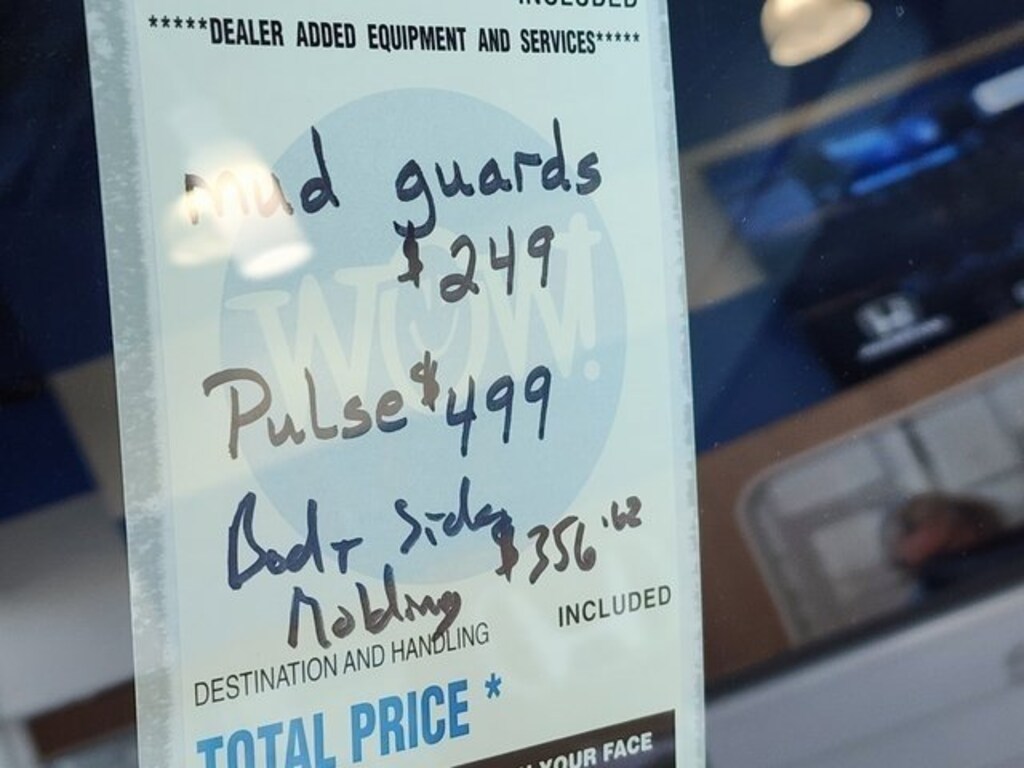 INCLUDED
*****DEALER ADDED EQUIPMENT AND SERVICES*****
mud guards
$249
WOW!
Pulse $499
Body Side
$356.62
Molding
INCLUDED
DESTINATION AND HANDLING
TOTAL PRICE *
YOUR FACE